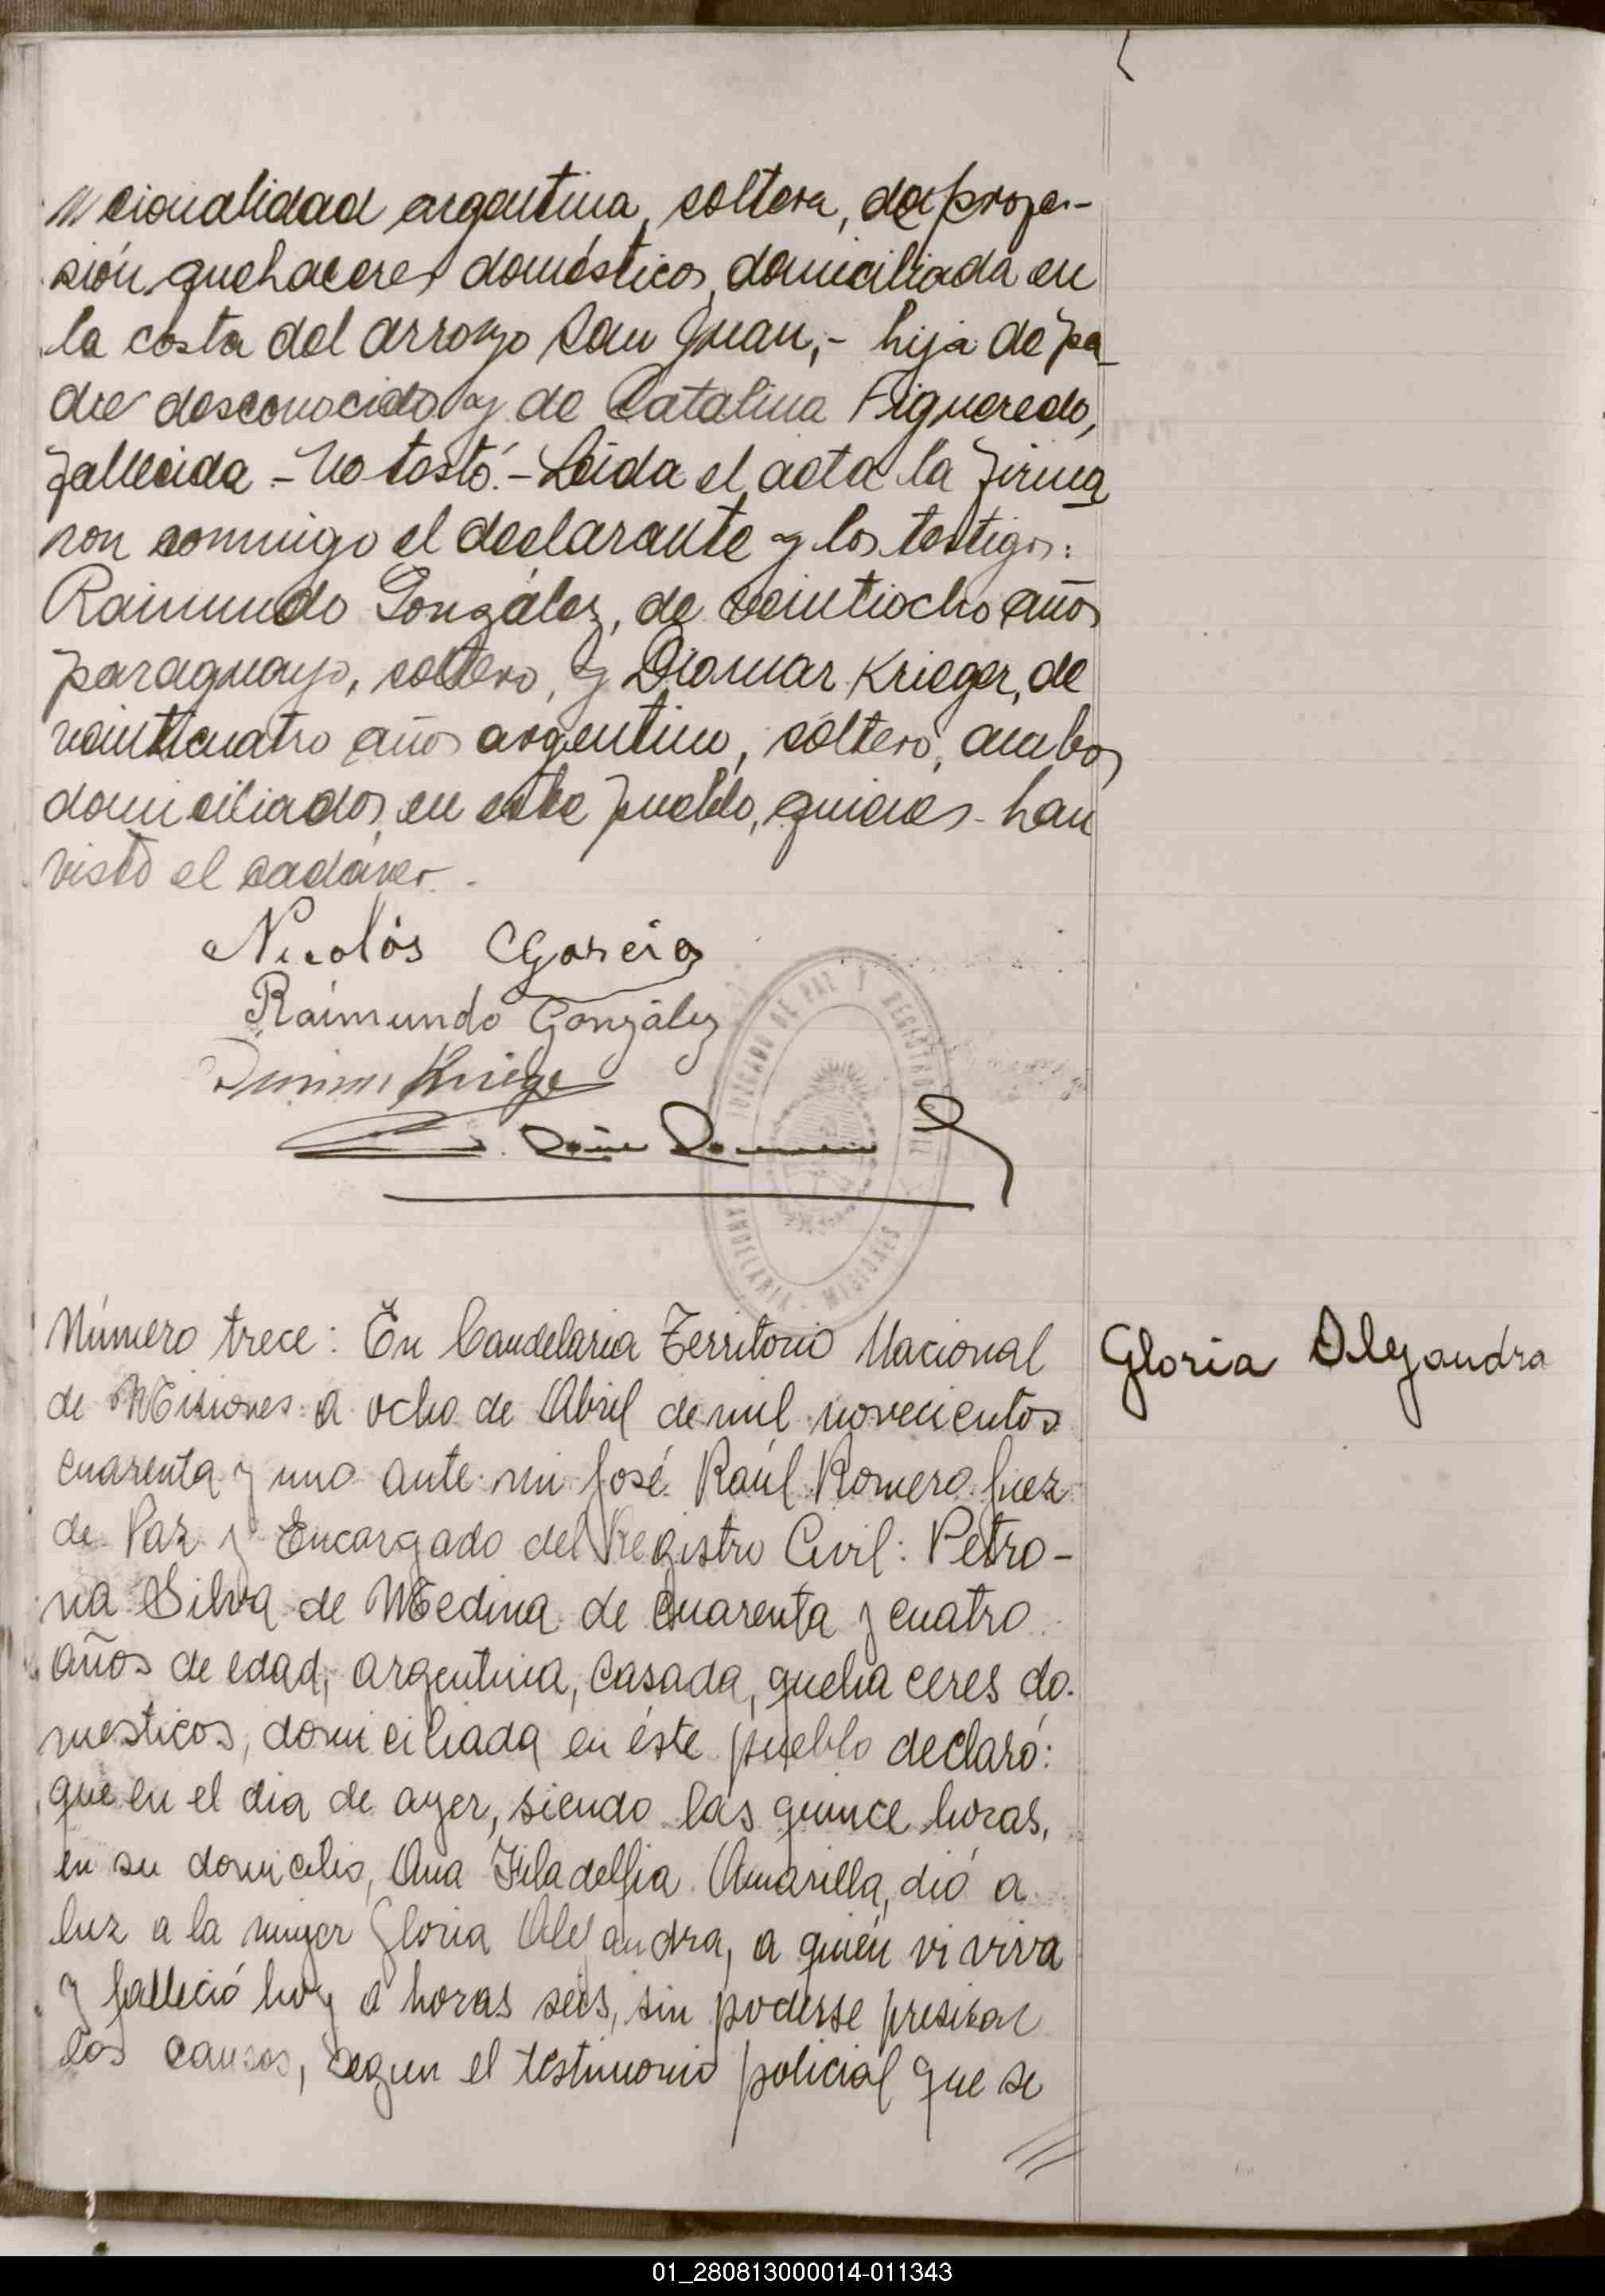 nacionalidad argentina, soltera, de profe-
sión quehaceres domésticos, domiciliada en
la costa del arroyo San Juan,- hija de pa-
dre desconocido y de Catalina Figueredo,
fallecida - No testó.- Leída el acta la firma
ron conmigo el declarante y los testigos:
Raimundo González, de veintiocho años
paraguayo, soltero, y Diomar Krieger, de
veinticuatro años argentino, soltero, ambos
domiciliados en este pueblo, quienes han
visto el cadáver.-
Nicolás García
Raimundo González
Krieger
JUZGADO DE PAZ Y REGISTRO CIVIL
CANDELARIA - MISIONES
Número trece: En Candelaria Territorio Nacional
Gloria Alejandra
de Misiones a ocho de Abril de mil novecientos
cuarenta y uno ante mi José Raúl Romero Juez
de Paz y Encargado del Registro Civil: Petro-
na Silva de Medina de cuarenta y cuatro
años de edad, argentina, casada, quehaceres do-
mesticos, domiciliada en éste pueblo declaró:
que en el dia de ayer, siendo las quince horas,
en su domicilio, Ana Filadelfia Amarilla, dió a
luz a la mujer Gloria Alejandra, a quién vi viva
y falleció hoy a horas seis, sin poderse presisar
las causas, segun el testimonio policial que se
01_280813000014-011343